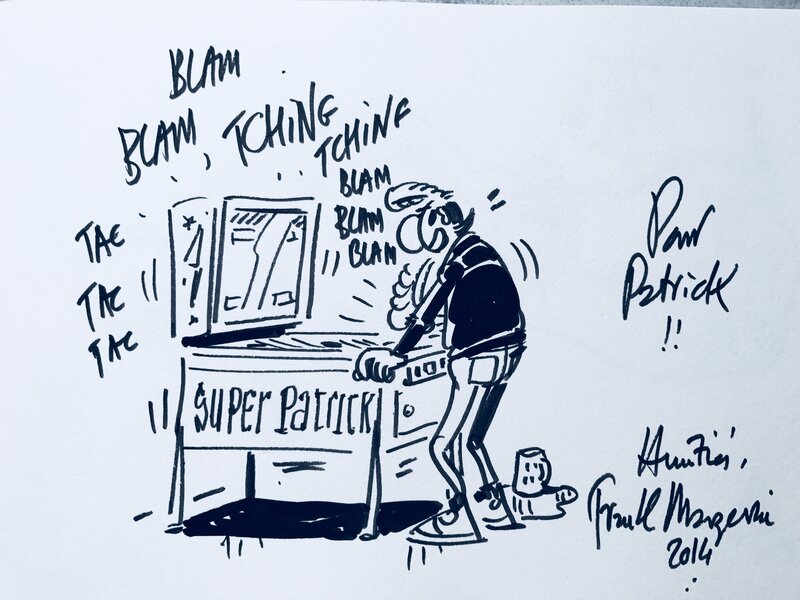 BLAM
BLAM, TCHING
TCHING
BLAM
BLAM
BLAM
TAC
TAC
TAC
SUPER PATRICK
Pour
Patrick
!!
Amitiés,
Frank Margerin
2014